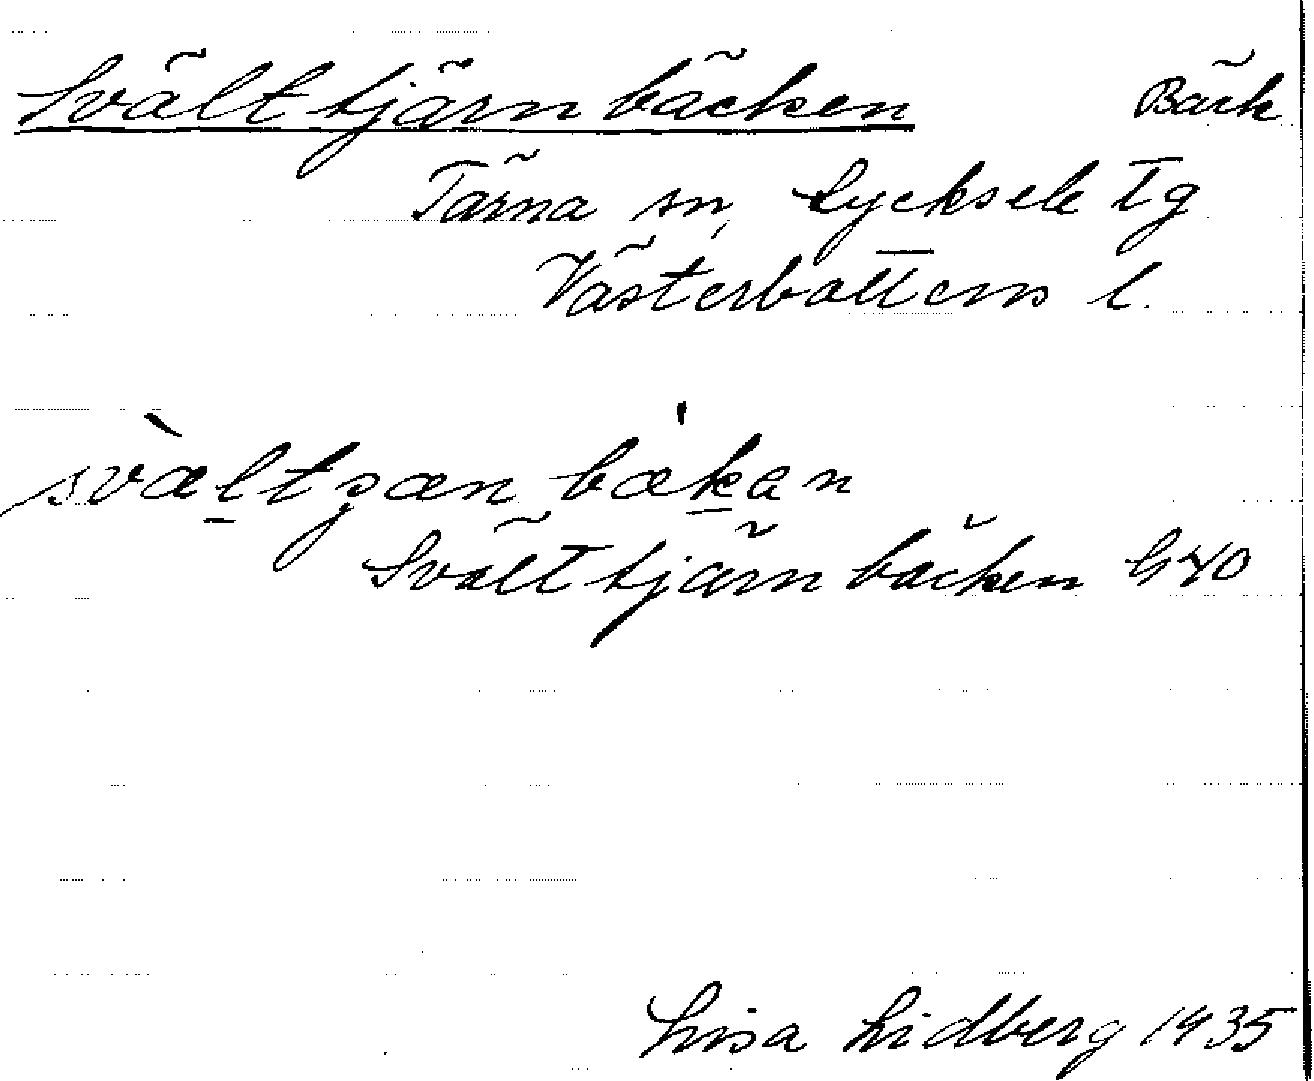 Svälttjärnbäcken Bäck
Tärna sn, Lycksele tg
Västerbottens l.
svæltjæn bækan
Svälttjärnbäcken G40
Lisa Lidberg 1935